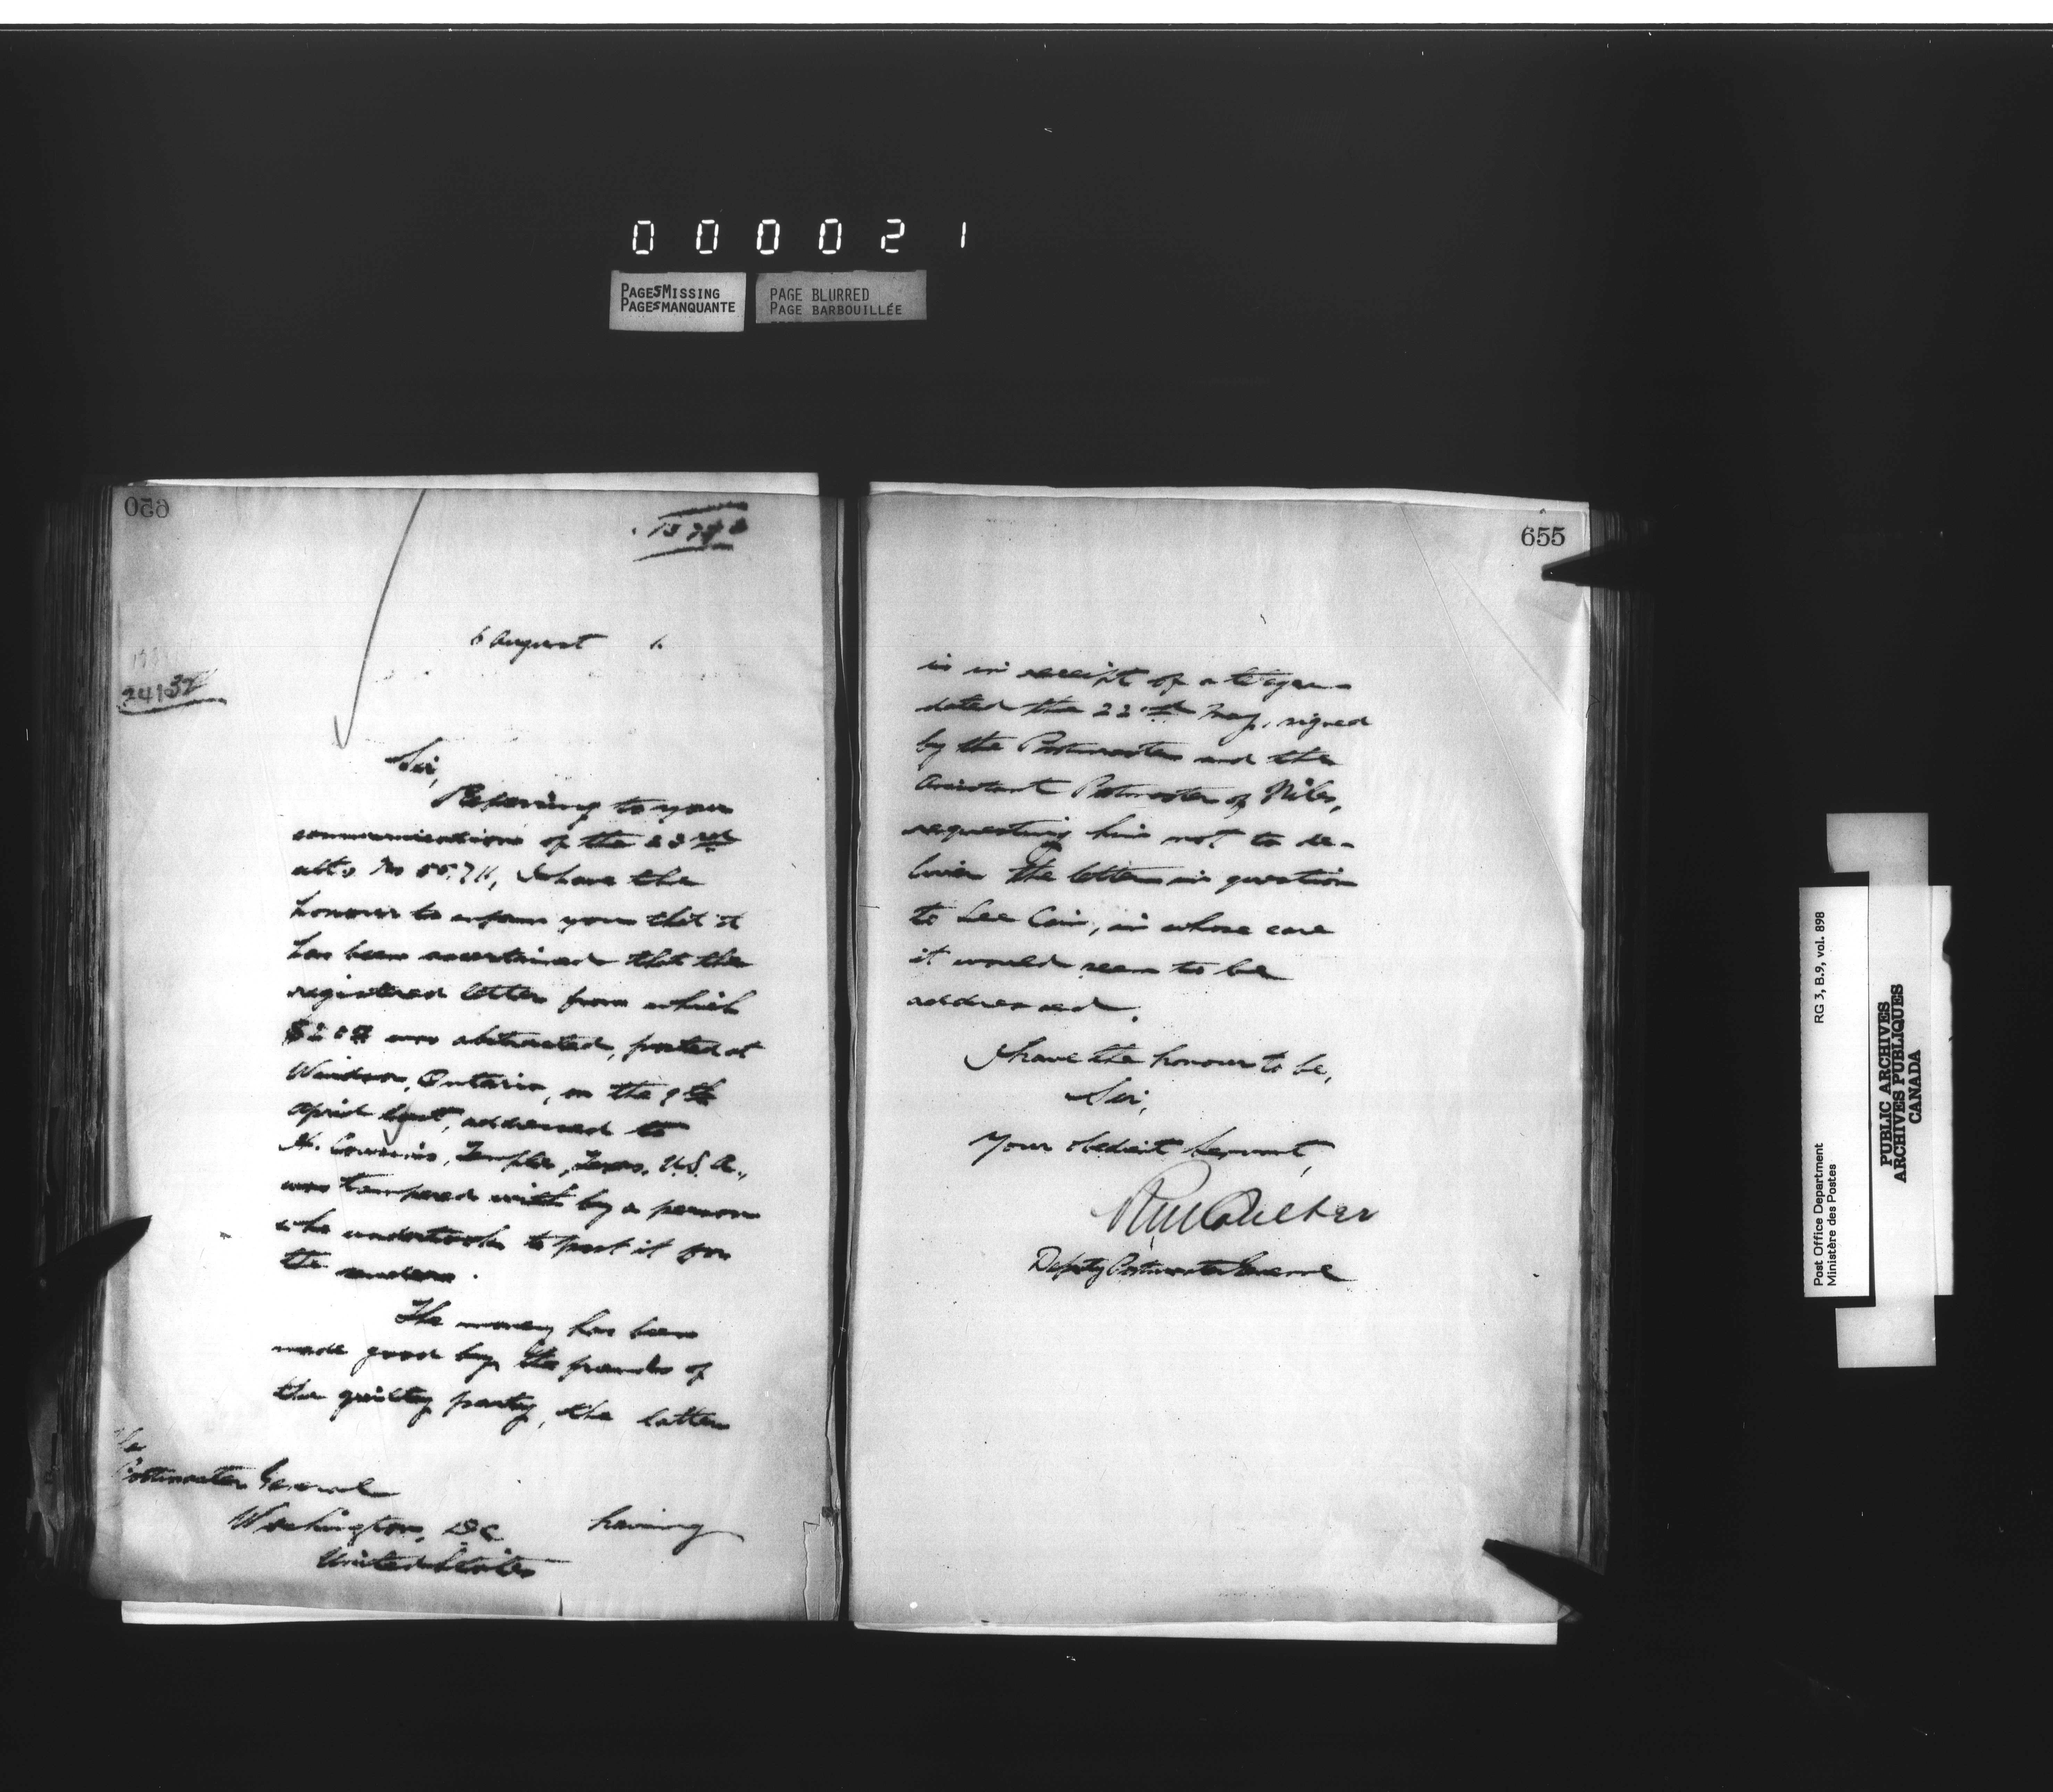 000021
PAGES MISSING
PAGES MANQUANTE
PAGE BLURRED
PAGE BARBOUILLÉE
650
6 August
24132
Sir,
Referring to your
communication of the 23rd
ulto No 55.711, I have the
honour to inform you that it
has been ascertained that the
registered letter from which
was abstracted, posted at
Windsor, Ontario, on the 9th
April last, addressed to
H. Temple, Texas, U.S.A.,
was tampered with by a person
who undertook to post it for
the sender.
The money has been
made good by the friends of
the guilty party, the latter
The
Postmaster General
Washington, DC
United States
having
655
is in receipt of a telegram
dated the 22nd May, signed
by the Postmaster and the
Assistant Postmaster of Niles,
requesting him not to de-
liver the letter in question
to Lee Coin, in whose care
it would seem to be
addressed.
I have the honour to be,
Sir,
Your obedient Servant,
Deputy Postmaster General
Post Office Department RG 3, B.9, vol. 898
Ministère des Postes
PUBLIC ARCHIVES
ARCHIVES PUBLIQUES
CANADA